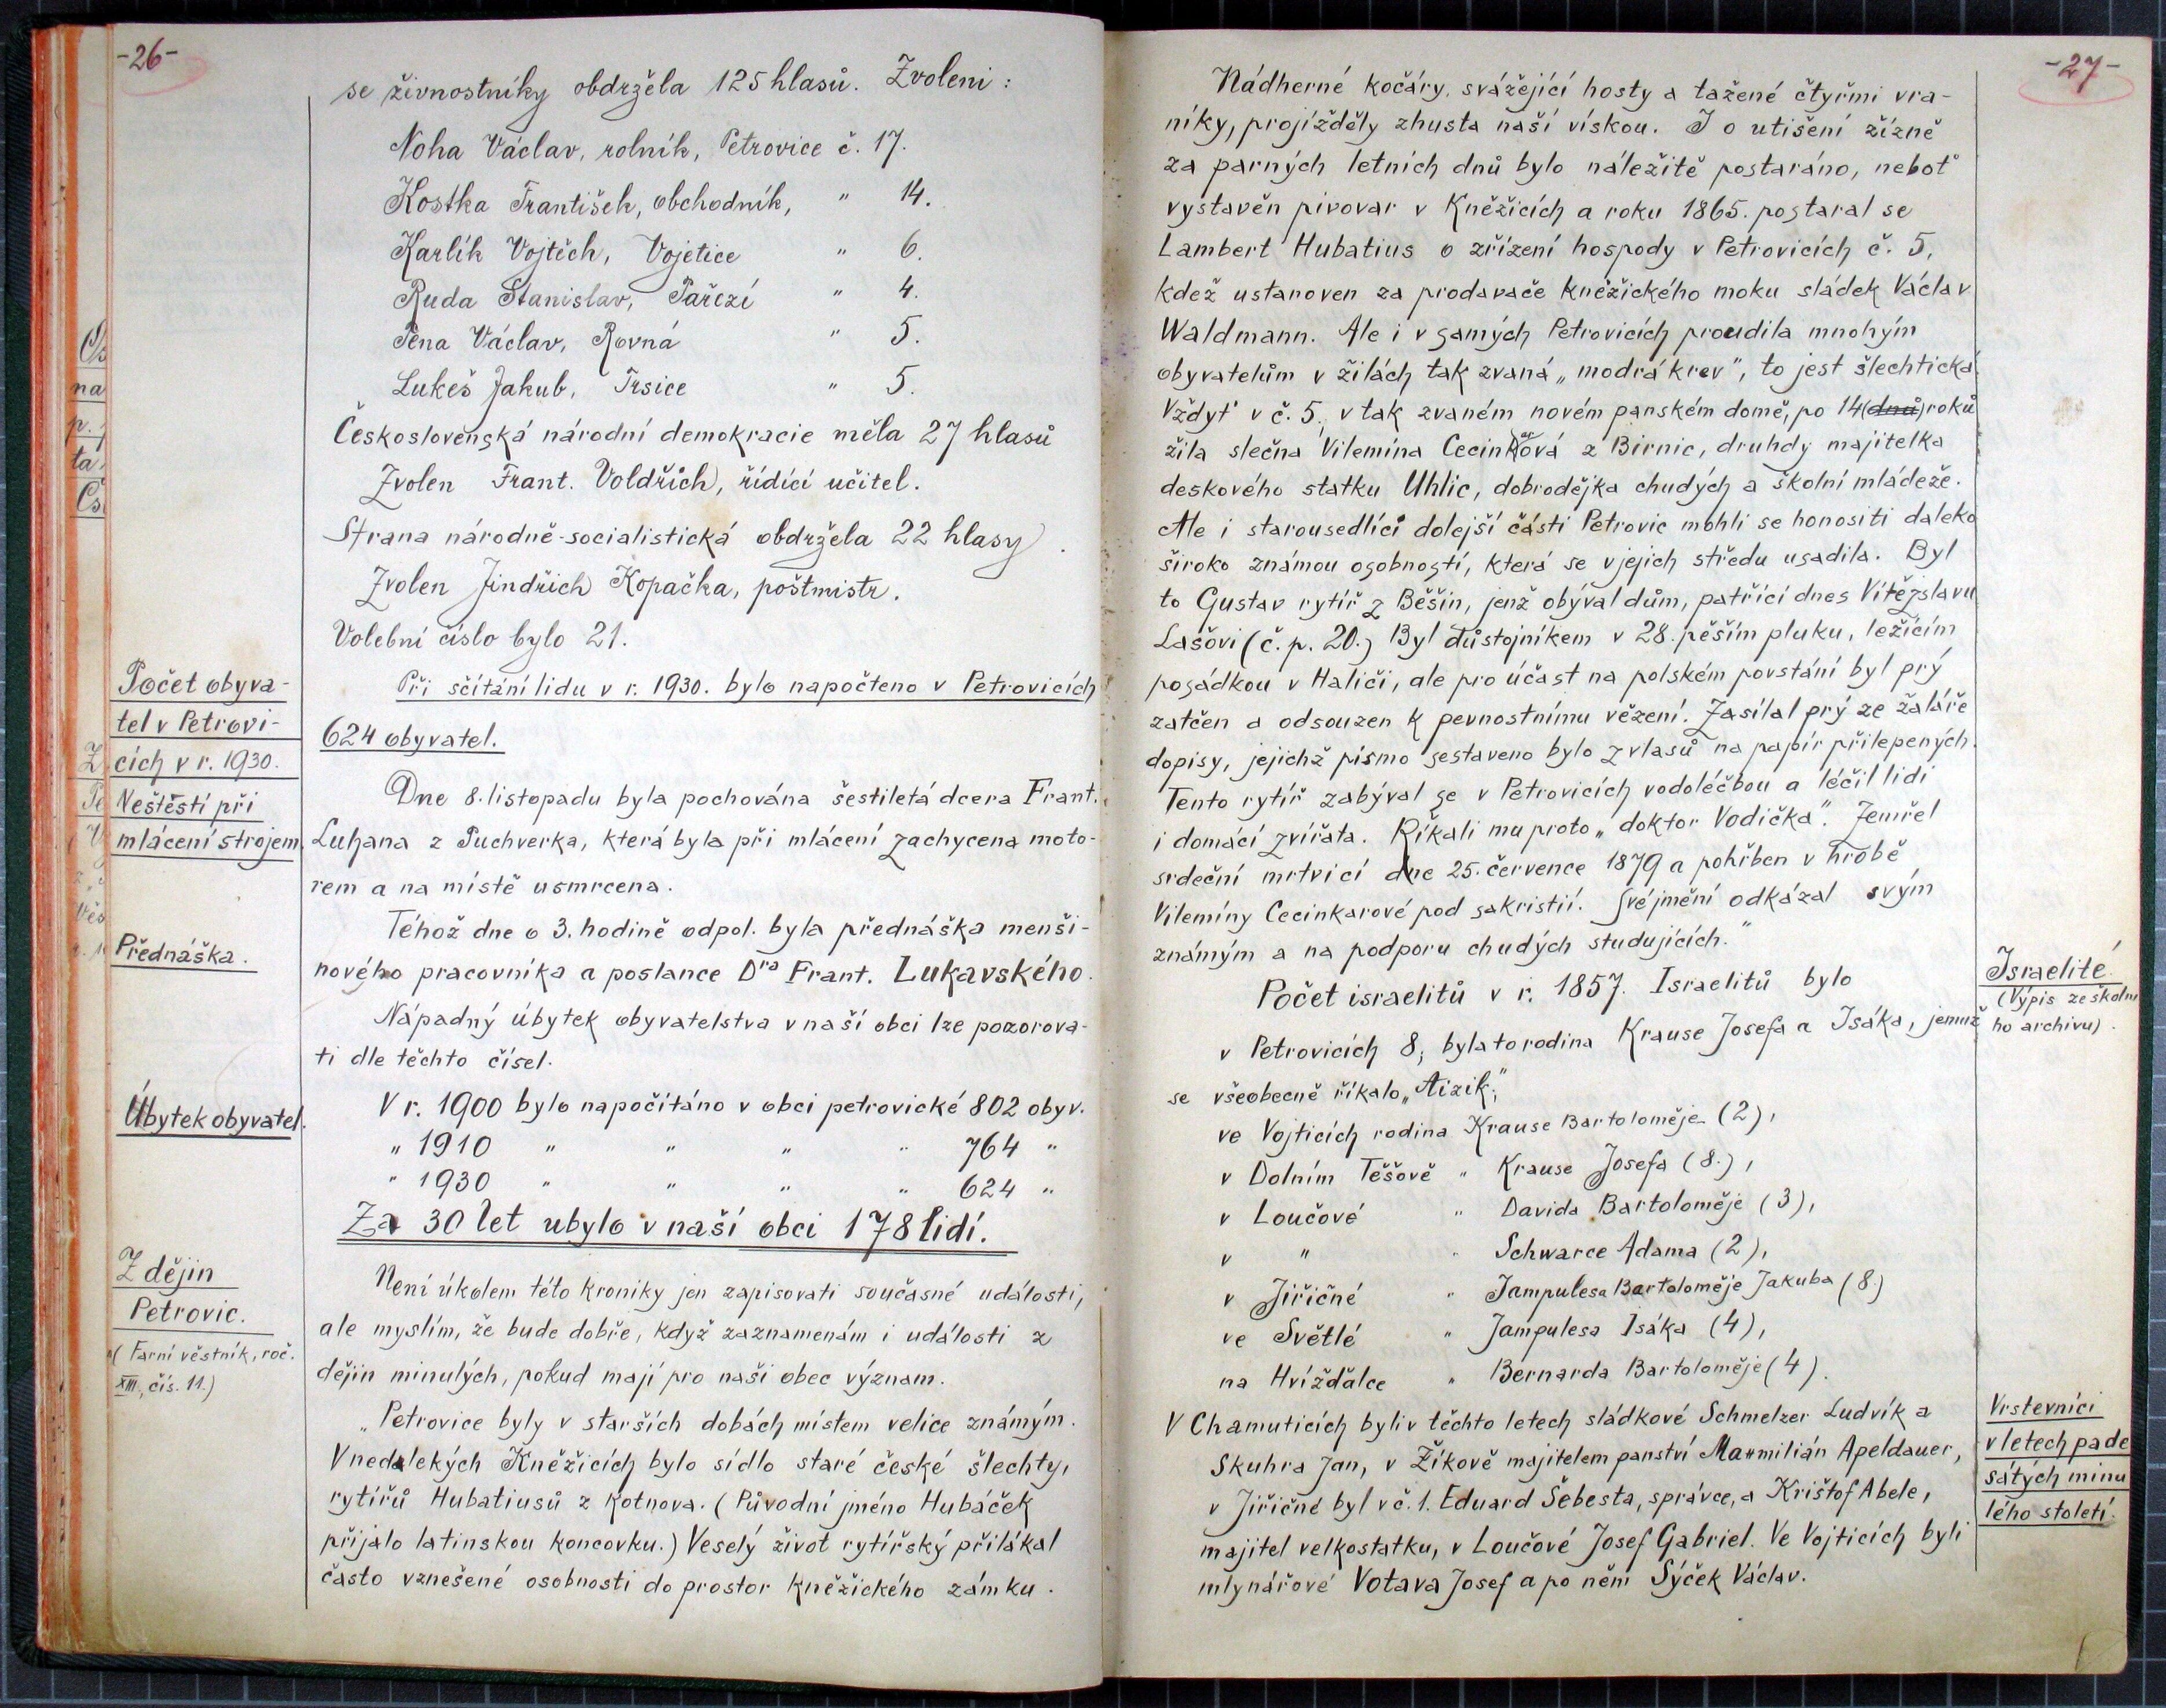 -26-
se živnostníky obdržela 125 hlasů. Zvoleni:
Noha Václav, rolník, Petrovice č. 17.
Kostka František, obchodník, " 14.
Karlík Vojtěch, Vojetice " 6.
Ruda Stanislav, Pařezí " 4.
Pena Václav, Rovná " 5.
Lukeš Jakub, Trsice " 5.
Československá národní demokracie měla 27 hlasů
Zvolen Frant. Voldřich, řídící učitel.
Strana národně-socialistická obdržela 22 hlasy.
Zvolen Jindřich Kopačka, poštmistr.
Volební číslo bylo 21.
Počet obyva-
tel v Petrovi-
cích v r. 1930.
Při sčítání lidu v r. 1930. bylo napočteno v Petrovicích
624 obyvatel.
Neštěstí při
mlácení strojem.
Dne 8. listopadu byla pochována šestiletá dcera Frant.
Luhana z Puchverka, která byla při mlácení zachycena moto-
rem a na místě usmrcena.
Přednáška.
Téhož dne o 3. hodině odpol. byla přednáška menši-
nového pracovníka a poslance Dra Frant. Lukavského.
Nápadný úbytek obyvatelstva v naší obci lze pozorova-
ti dle těchto čísel.
Úbytek obyvatel.
V r. 1900 bylo napočítáno v obci petrovické 802 obyv.
" 1910 " " " " 764 "
" 1930 " " " " 624 "
Za 30 let ubylo v naší obci 178 lidí.
Z dějin
Petrovic.
(Farní věstník, roč.
XIII., čís. 11.)
Není úkolem této kroniky jen zapisovati současné události,
ale myslím, že bude dobře, když zaznamenám i události z
dějin minulých, pokud mají pro naši obec význam.
„Petrovice byly v starších dobách místem velice známým.
V nedalekých Kněžicích bylo sídlo staré české šlechty,
rytířů Hubatiusů z Kotnova. (Původní jméno Hubáček
přijalo latinskou koncovku.) Veselý život rytířský přilákal
často vznešené osobnosti do prostor kněžického zámku.
-27-
Nádherné kočáry, svážející hosty a tažené čtyřmi vra-
níky, projížděly zhusta naší vískou. I o utišení žízně
za parných letních dnů bylo náležitě postaráno, neboť
vystavěn pivovar v Kněžicích a roku 1865. postaral se
Lambert Hubatius o zřízení hospody v Petrovicích č. 5,
kdež ustanoven za prodavače kněžického moku sládek Václav
Waldmann. Ale i v samých Petrovicích proudila mnohým
obyvatelům v žilách tak zvaná „modrá krev", to jest šlechtická.
Vždyť v č. 5., v tak zvaném novém panském domě, po 14 (dnů) roků
žila slečna Vilemína Cecinkarová z Birnic, druhdy majitelka
deskového statku Uhlic, dobrodějka chudých a školní mládeže.
Ale i starousedlíci dolejší části Petrovic mohli se honositi daleko
široko známou osobností, která se v jejich středu usadila. Byl
to Gustav rytíř z Běšin, jenž obýval dům, patřící dnes Vítězslavu
Lašovi (č. p. 20.) Byl důstojníkem v 28. pěším pluku, ležícím
posádkou v Haliči, ale pro účast na polském povstání byl prý
zatčen a odsouzen k pevnostnímu vězení. Zasílal prý ze žaláře
dopisy, jejichž písmo sestaveno bylo z vlasů na papír přilepených.
Tento rytíř zabýval se v Petrovicích vodoléčbou a léčil lidi
i domácí zvířata. Říkali mu proto „doktor Vodička". Zemřel
srdeční mrtvicí dne 25. července 1879 a pohřben v hrobě
Vilemíny Cecinkarové pod sakristií. Své jmění odkázal svým
známým a na podporu chudých studujících."
Israelité.
(Výpis ze školní
ho archivu).
Počet israelitů v r. 1857. Israelitů bylo
v Petrovicích 8; byla to rodina Krause Josefa a Isáka, jemuž
se všeobecně říkalo „Aizik",
ve Vojticích rodina Krause Bartoloměje (2),
v Dolním Těšově " Krause Josefa (8.),
v Loučové " Davida Bartoloměje (3),
v " " Schwarce Adama (2),
v Jiřičné " Jampulesa Bartoloměje Jakuba (8)
ve Světlé " Jampulesa Isáka (4),
na Hvížďalce " Bernarda Bartoloměje (4).
Vrstevníci
v letech pade
sátých minu
lého století.
V Chamuticích byli v těchto letech sládkové Schmelzer Ludvík a
Skuhra Jan, v Žíkově majitelem panství Maxmilián Apeldauer,
v Jiřičné byl v č. 1. Eduard Šebesta, správce, a Krištof Abele,
majitel velkostatku, v Loučové Josef Gabriel. Ve Vojticích byli
mlynářové Votava Josef a po něm Sýček Václav.